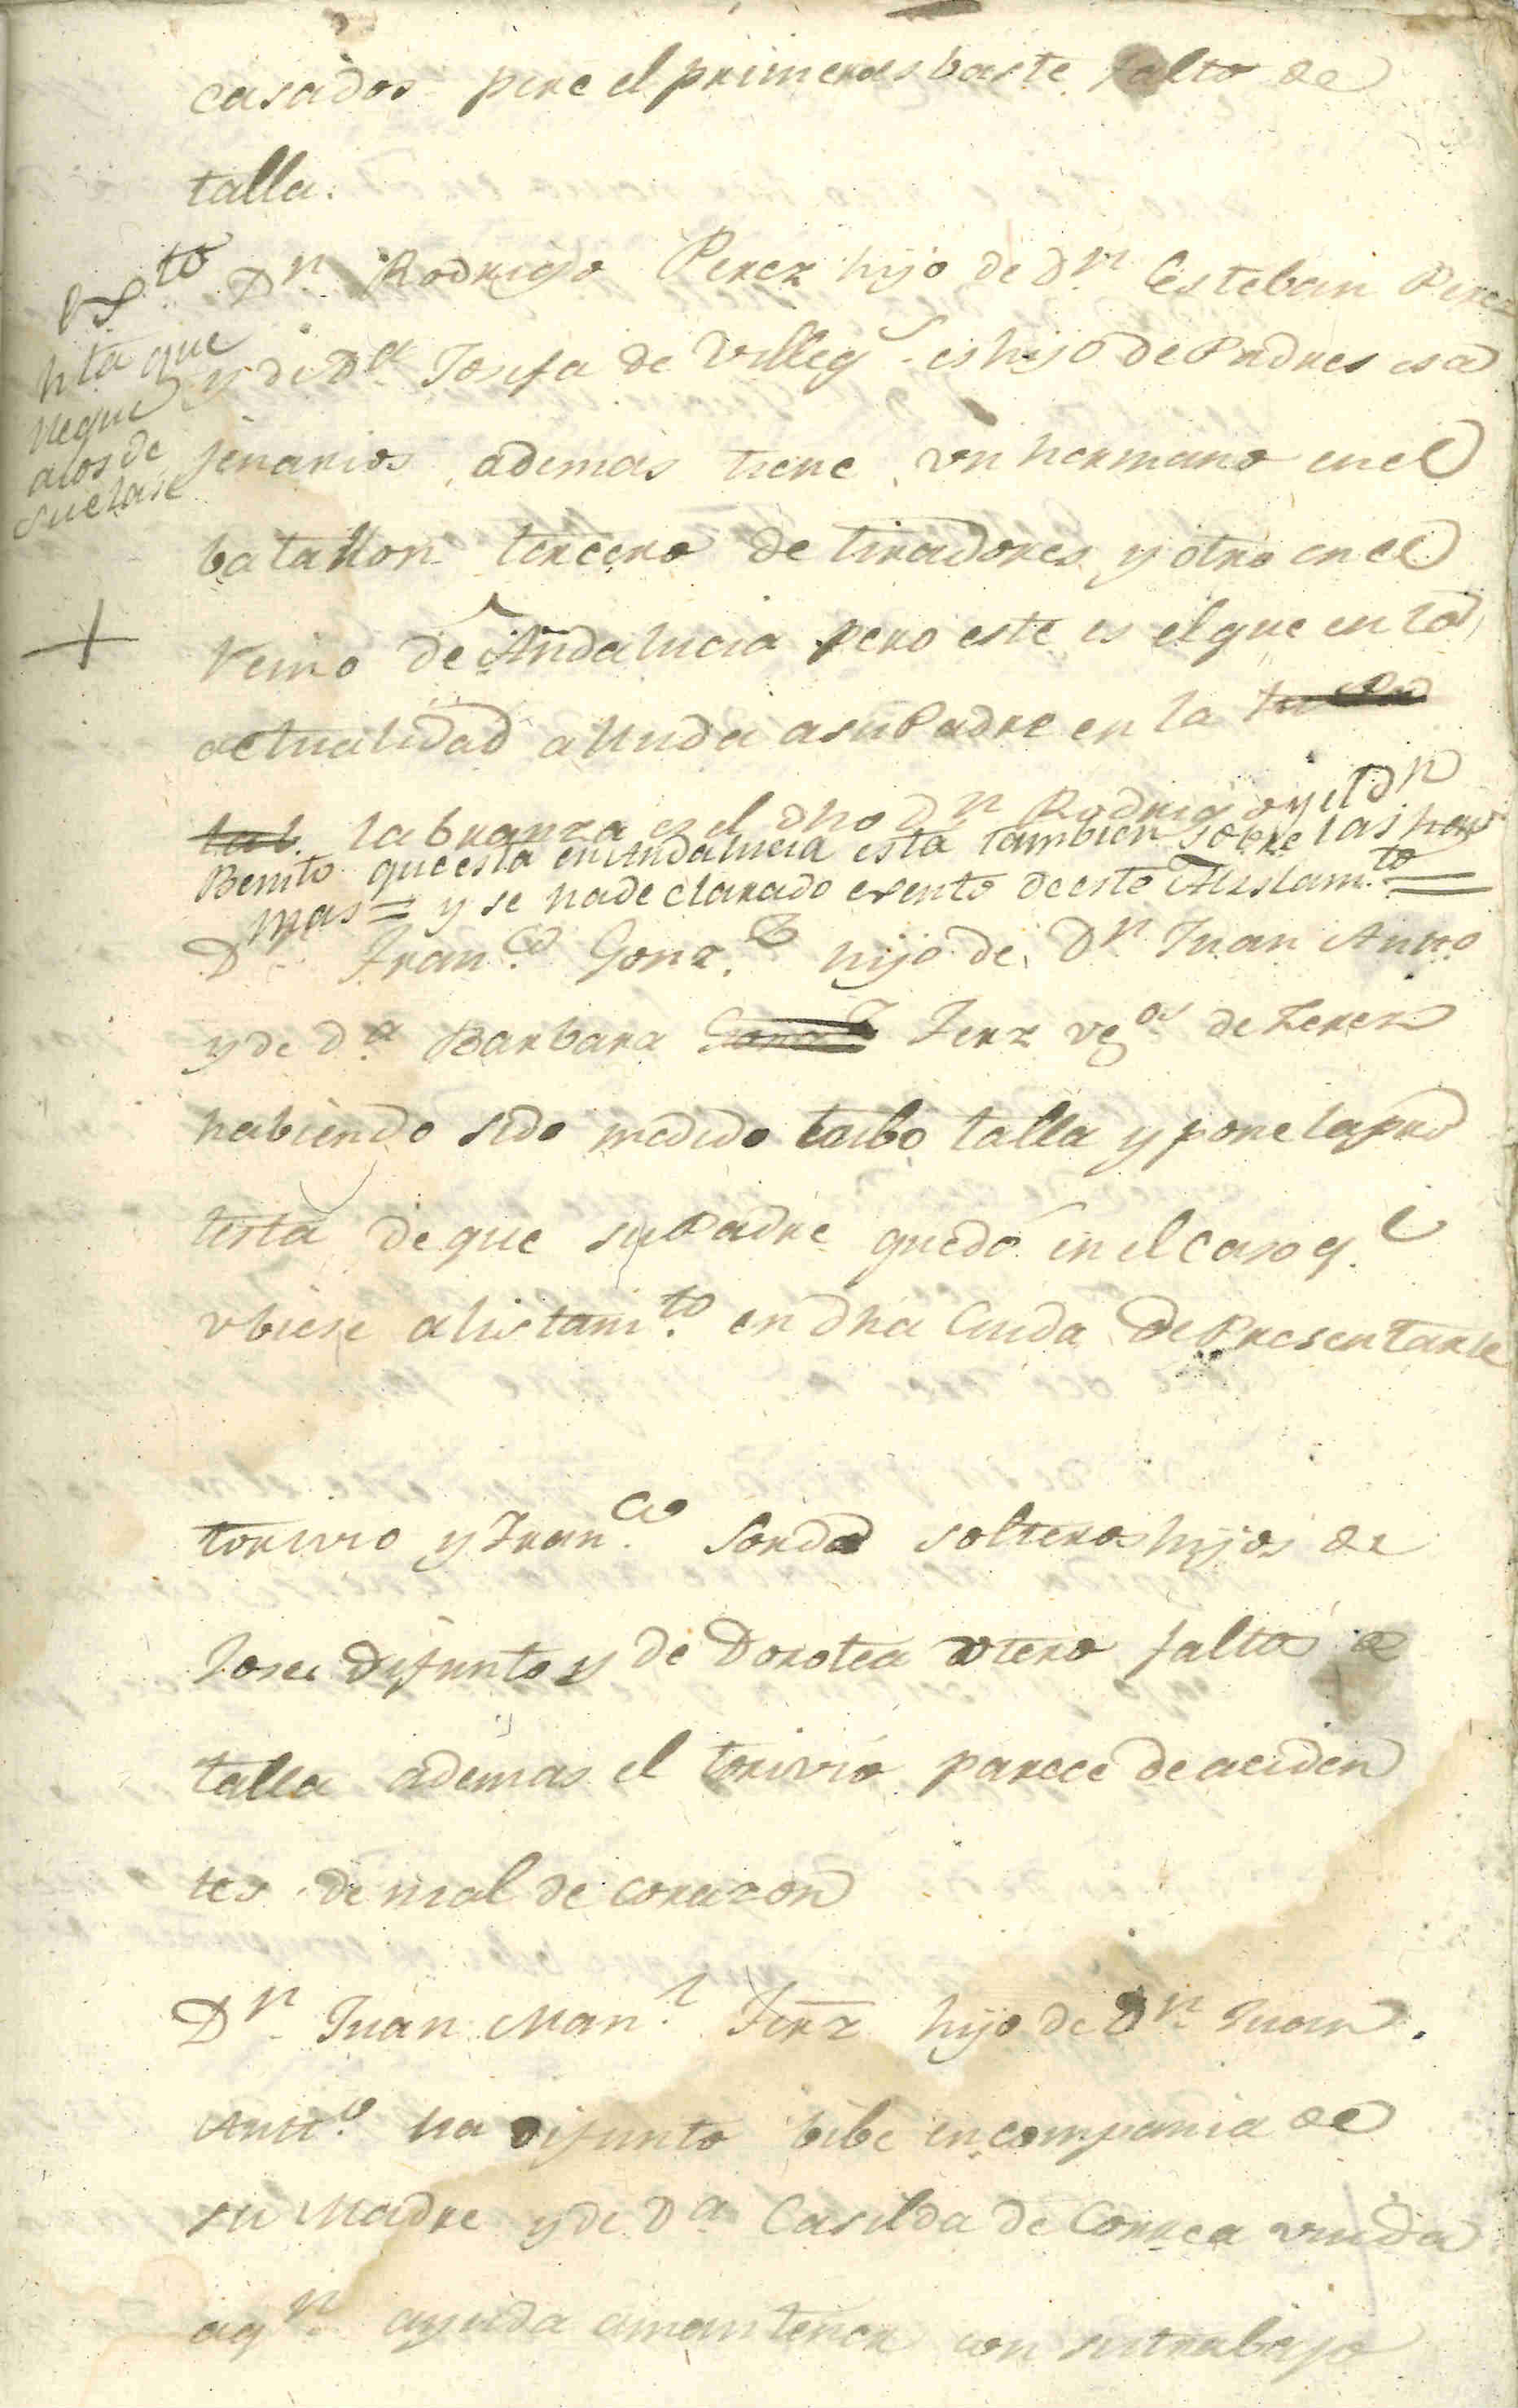 casados pero el primero es baste falto de
talla.
Exto
hta que
llegue
a los de
su clase
Dn Rodrigo Perez hijo de Dn Esteban Perez
y de Da Josefa de Villegs es hijo de Padres esa
jenarios, ademas tiene vn hermano en el
batallon tercero de tiradores y otro en el
Reino de Andalucia pero este es el que en la
actualidad alluda a su Padre en la
labranza es el dho Dn Rodrigo y el Dn
Benito que esta en Andalucia esta tambien sobre las
mas = y se ha declarado exento de este Alistamto =
Dn Franco Gonz.z hijo de Dn Juan Anto
y de Da Barbara Ferz vgos de Xerez
habiendo sido medido tubo talla y pone la pro
testa de que su Padre quedó en el caso q.e
vbiese alistamto en dha Ciuda de Presentarle
torivio y Franco Sorda solteros hijos de
Jose difunto y de Dorotea otero faltos de
talla ademas el torivio parece de aciden
tes de mal de corazon
Dn Juan Manl Ferz hijo de Dn Juan
Anto ya difunto bibe en compania de
su Madre y de Da Casilda de Correa viuda
a qn ayuda a mantener con su trabajo